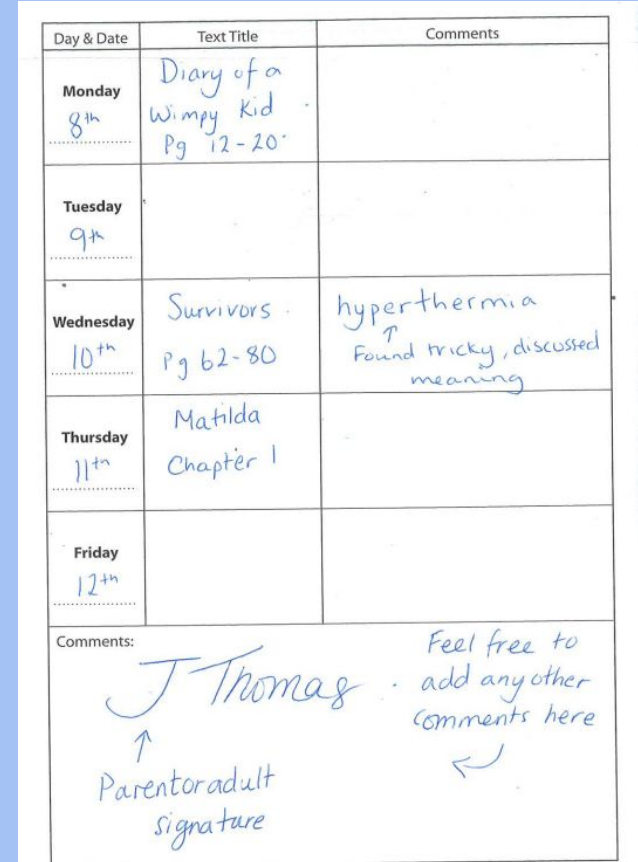 Day & Date Text Title Comments
Monday
8th
Diary of a
Wimpy Kid
Pg 12-20
Tuesday
9th
Wednesday
10th
Survivors
Pg 62-80
hyperthermia
Found tricky, discussed
meaning
Thursday
11th
Matilda
Chapter 1
Friday
12th
Comments:
J Thomas
Parent or adult
signature
Feel free to
add any other
comments here